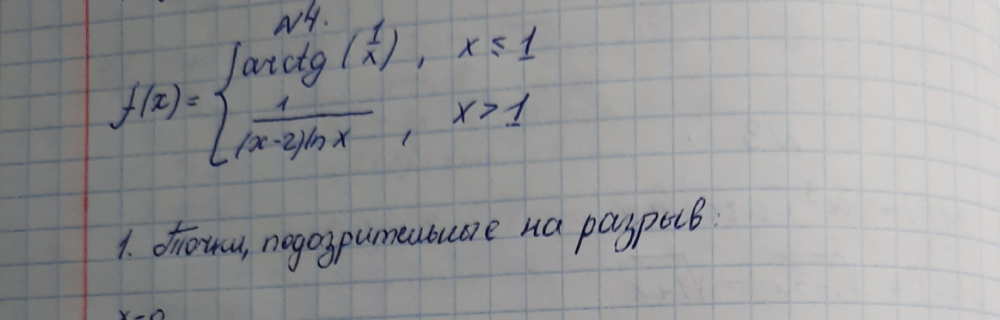 N4.
f(x) = { arctg (1/x), x ≤ 1
1/((x-2)ln x), x > 1
1. Точки, подозрительные на разрыв:
x=0